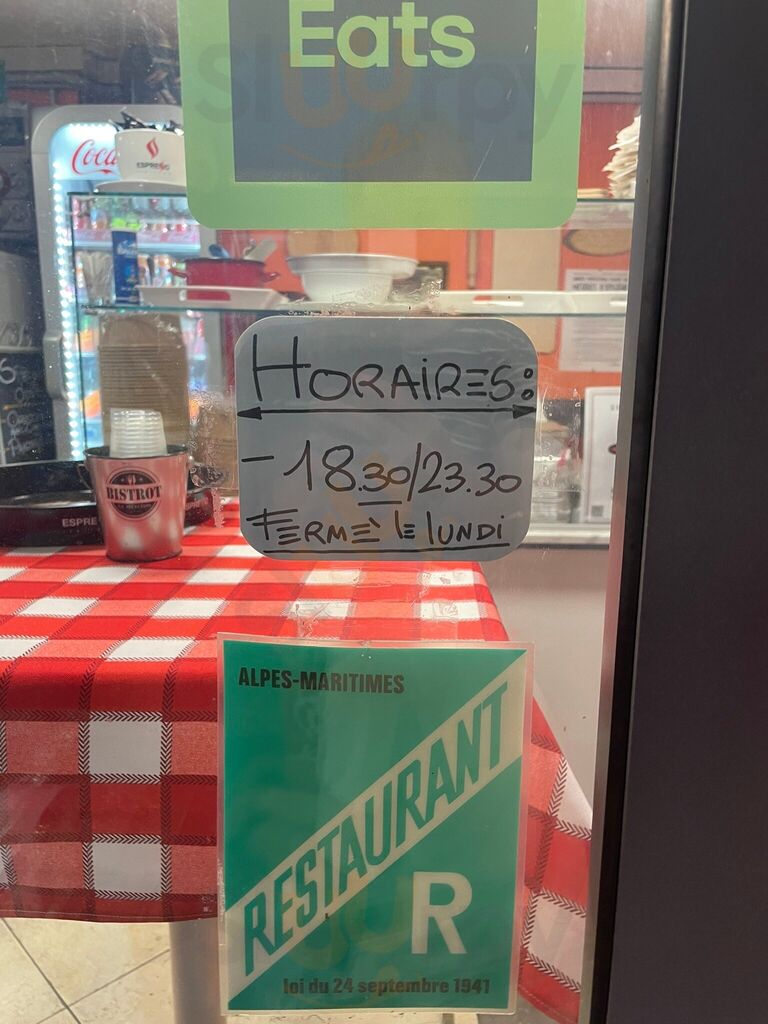 Eats
Sluurpy
Coca
ESPRESSO
HORAIRES:
-18.30/23.30
FERMÈ le lUNDi
BISTROT
ESPRE
ALPES-MARITIMES
RESTAURANT
R
loi du 24 septembre 1941